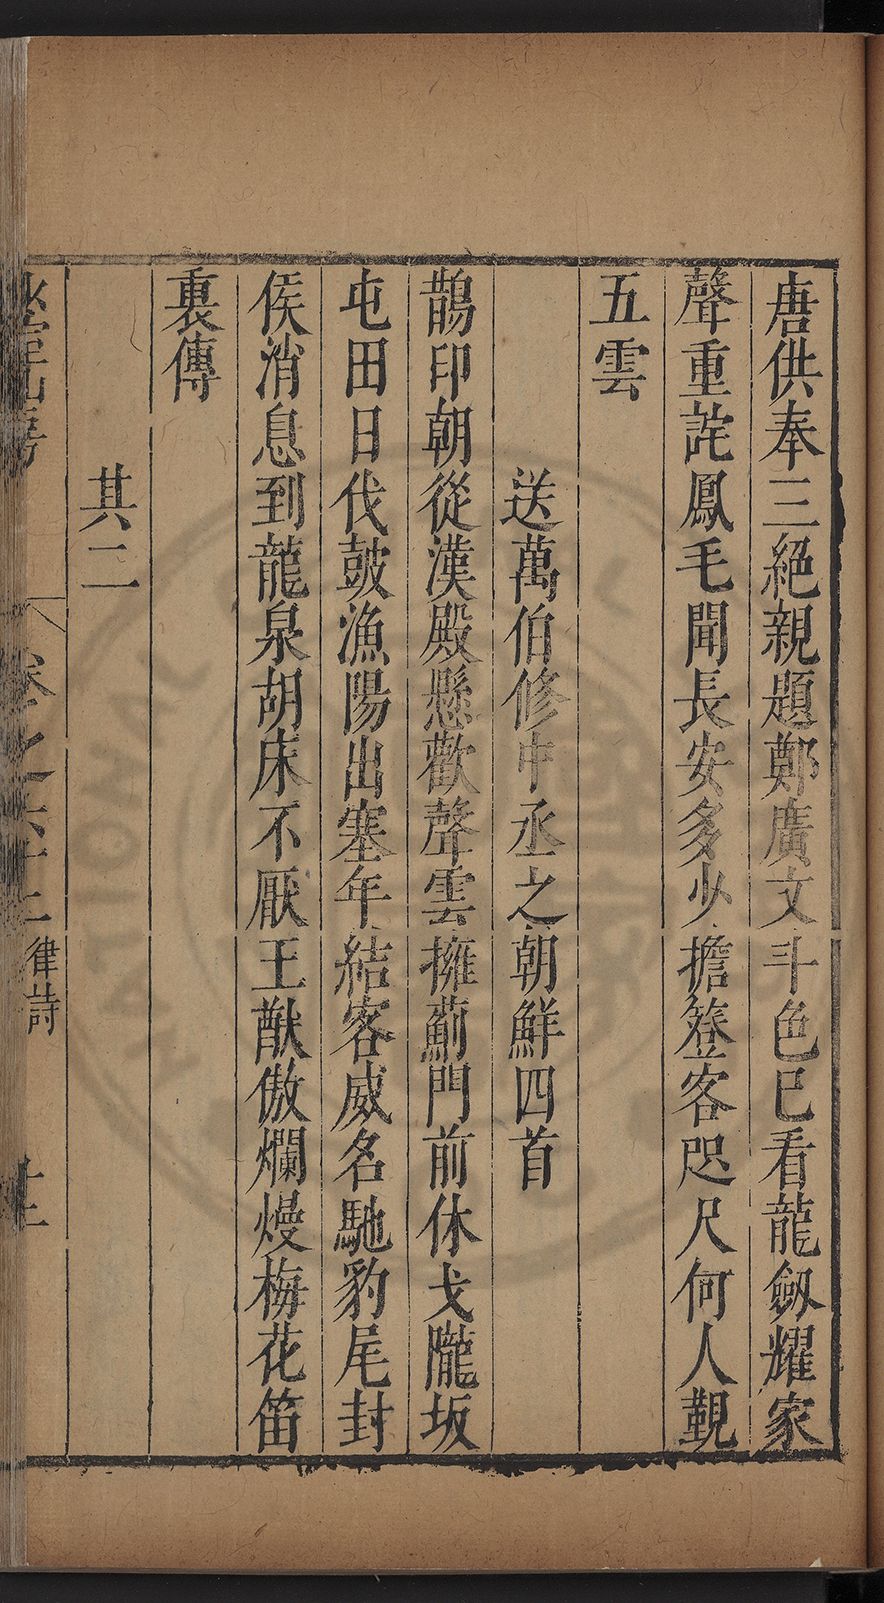 唐供奉三絕親題鄭廣文斗色已看龍劔耀家
聲重詫鳳毛聞長安多少擔簦客咫尺何人覲
五雲
送萬伯修中丞之朝鮮四首
鵲印朝從漢殿懸歡聲雲擁薊門前休戈隴坂
屯田日伐皷漁陽出塞年結客威名馳豹尾封
侯消息到龍泉胡床不厭王猷傲爛熳梅花笛
裏傳
其二
卷之六十二 律詩